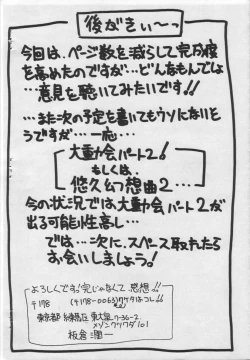 後がきぃ〜っ
今回は、ページ数を減らして完成度
を高めたのですが…どんなもんでしょ
…意見を聴いてみたいです!!
…また次の予定を書いてもウソにないそ
うですが…一応…
大動会パート2!
もしくは、
悠久幻想曲2…
今の状況では大動会パート2が
出る可能性高し…
では…次に、スペース取れたら
お会いしましょう!
よろしんです!完じゃなくて感想!!
〒178 (〒178-0063)
東京都練馬区東大泉7-36-2
メゾンクワタ101
板倉